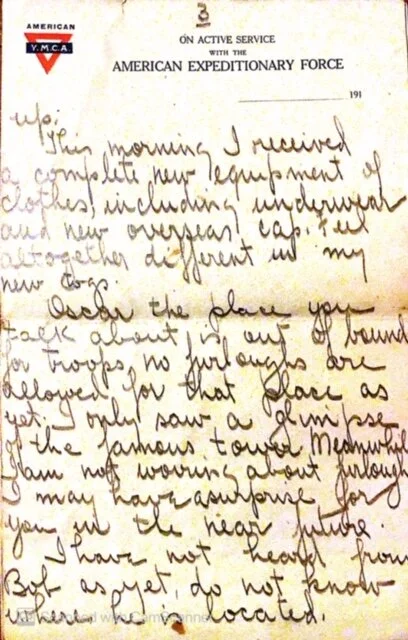 3
AMERICAN
Y.M.C.A.
ON ACTIVE SERVICE
WITH THE
AMERICAN EXPEDITIONARY FORCE
191
up.
This morning I received
a complete new equipment of
clothes, including underwear
and new overseas cap. Feel
altogether different in my
new togs.
Oscar the place you
talk about is out of bound
for troops, no furloughs are
allowed for that place as
yet. I only saw a glimpse
of the famous tower Meanwhile
I am not worring about furlough
I may have a surprise for
you in the near future.
I have not heard from
Bob as yet, do not know
where he is located.
Scanned with CamScanner